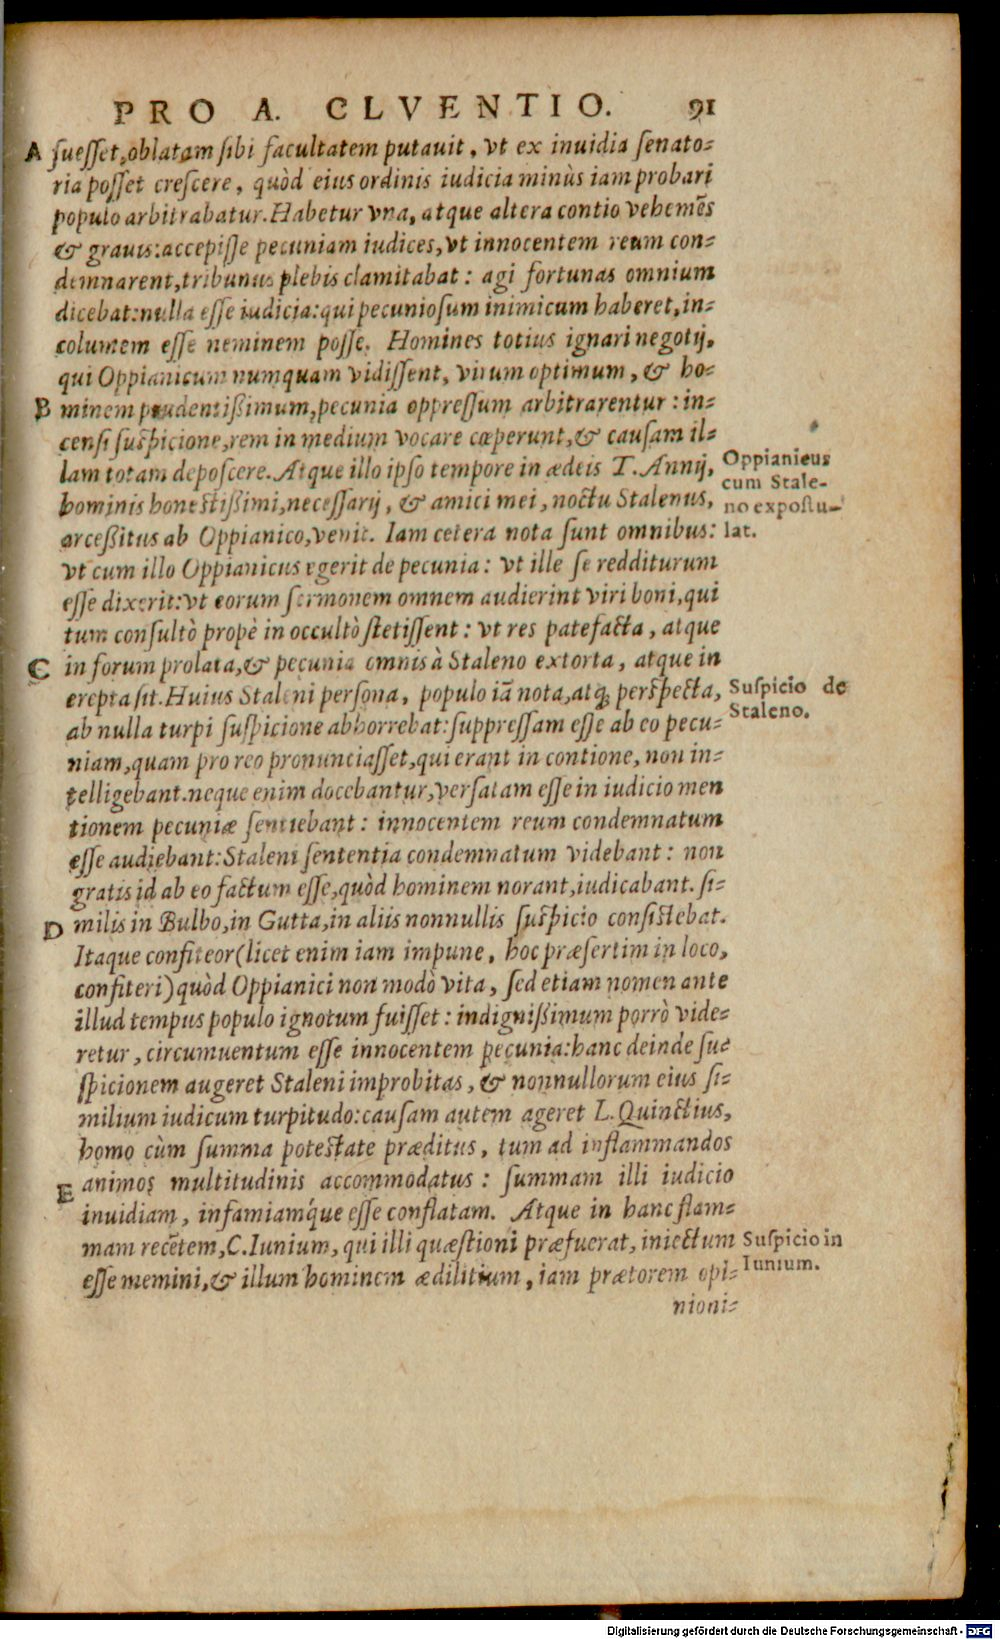 PRO A. CLVENTIO. 91
A ſueſſet, oblatam ſibi facultatem putauit, vt ex inuidia ſenato-
ria poſſet creſcere, quòd eius ordinis iudicia minùs iam probari
populo arbitrabatur. Habetur vna, atque altera contio vehemẽs
& grauis: accepiſſe pecuniam iudices, vt innocentem reum con-
demnarent, tribunus plebis clamitabat: agi fortunas omnium
dicebat: nulla eſſe iudicia: qui pecunioſum inimicum haberet, in-
columem eſſe neminem poſſe. Homines totius ignari negotij,
qui Oppianicum numquam vidiſſent, virum optimum, & ho-
B minem prudentißimum, pecunia oppreſſum arbitrarentur: in-
cenſi ſuſpicione, rem in medium vocare cœperunt, & cauſam il-
lam totam depoſcere. Atque illo ipſo tempore in ædeis T. Annij,
hominis honeſtißimi, neceſſarij, & amici mei, noctu Stalenus,
arceßitus ab Oppianico, venit. Iam cetera nota ſunt omnibus:
Oppianicus
cum Stale-
no expoſtu-
lat.
vt cum illo Oppianicus egerit de pecunia: vt ille ſe redditurum
eſſe dixerit: vt eorum ſermonem omnem audierint viri boni, qui
tum conſultò propè in occultò ſtetiſſent: vt res patefacta, atque
C in forum prolata, & pecunia omnis à Staleno extorta, atque in
erepta ſit. Huius Staleni perſona, populo iã nota, atq; perſpecta,
Suſpicio de
Staleno.
ab nulla turpi ſuſpicione abhorrebat: ſuppreſſam eſſe ab eo pecu-
niam, quam pro reo pronunciaſſet, qui erant in contione, non in-
telligebant. neque enim docebantur, verſatam eſſe in iudicio men
tionem pecuniæ ſentiebant: innocentem reum condemnatum
eſſe audiebant: Staleni ſententia condemnatum videbant: non
gratis id ab eo factum eſſe, quòd hominem norant, iudicabant. ſi-
D milis in Bulbo, in Gutta, in aliis nonnullis ſuſpicio conſiſtebat.
Itaque confiteor (licet enim iam impune, hoc præſertim in loco,
confiteri) quòd Oppianici non modò vita, ſed etiam nomen ante
illud tempus populo ignotum fuiſſet: indignißimum porrò vide-
retur, circumuentum eſſe innocentem pecunia: hanc deinde ſu-
ſpicionem augeret Staleni improbitas, & nonnullorum eius ſi-
milium iudicum turpitudo: cauſam autem ageret L. Quinctius,
homo cùm ſumma poteſtate præditus, tum ad inflammandos
E animos multitudinis accommodatus: ſummam illi iudicio
inuidiam, infamiamq́ue eſſe conflatam. Atque in hanc flam-
mam recẽtem, C. Iunium, qui illi quæſtioni præfuerat, iniectum
eſſe memini, & illum hominem ædilitium, iam prætorem opi-
Suſpicio in
Iunium.
nioni-
Digitalisierung gefördert durch die Deutsche Forschungsgemeinschaft - DFG